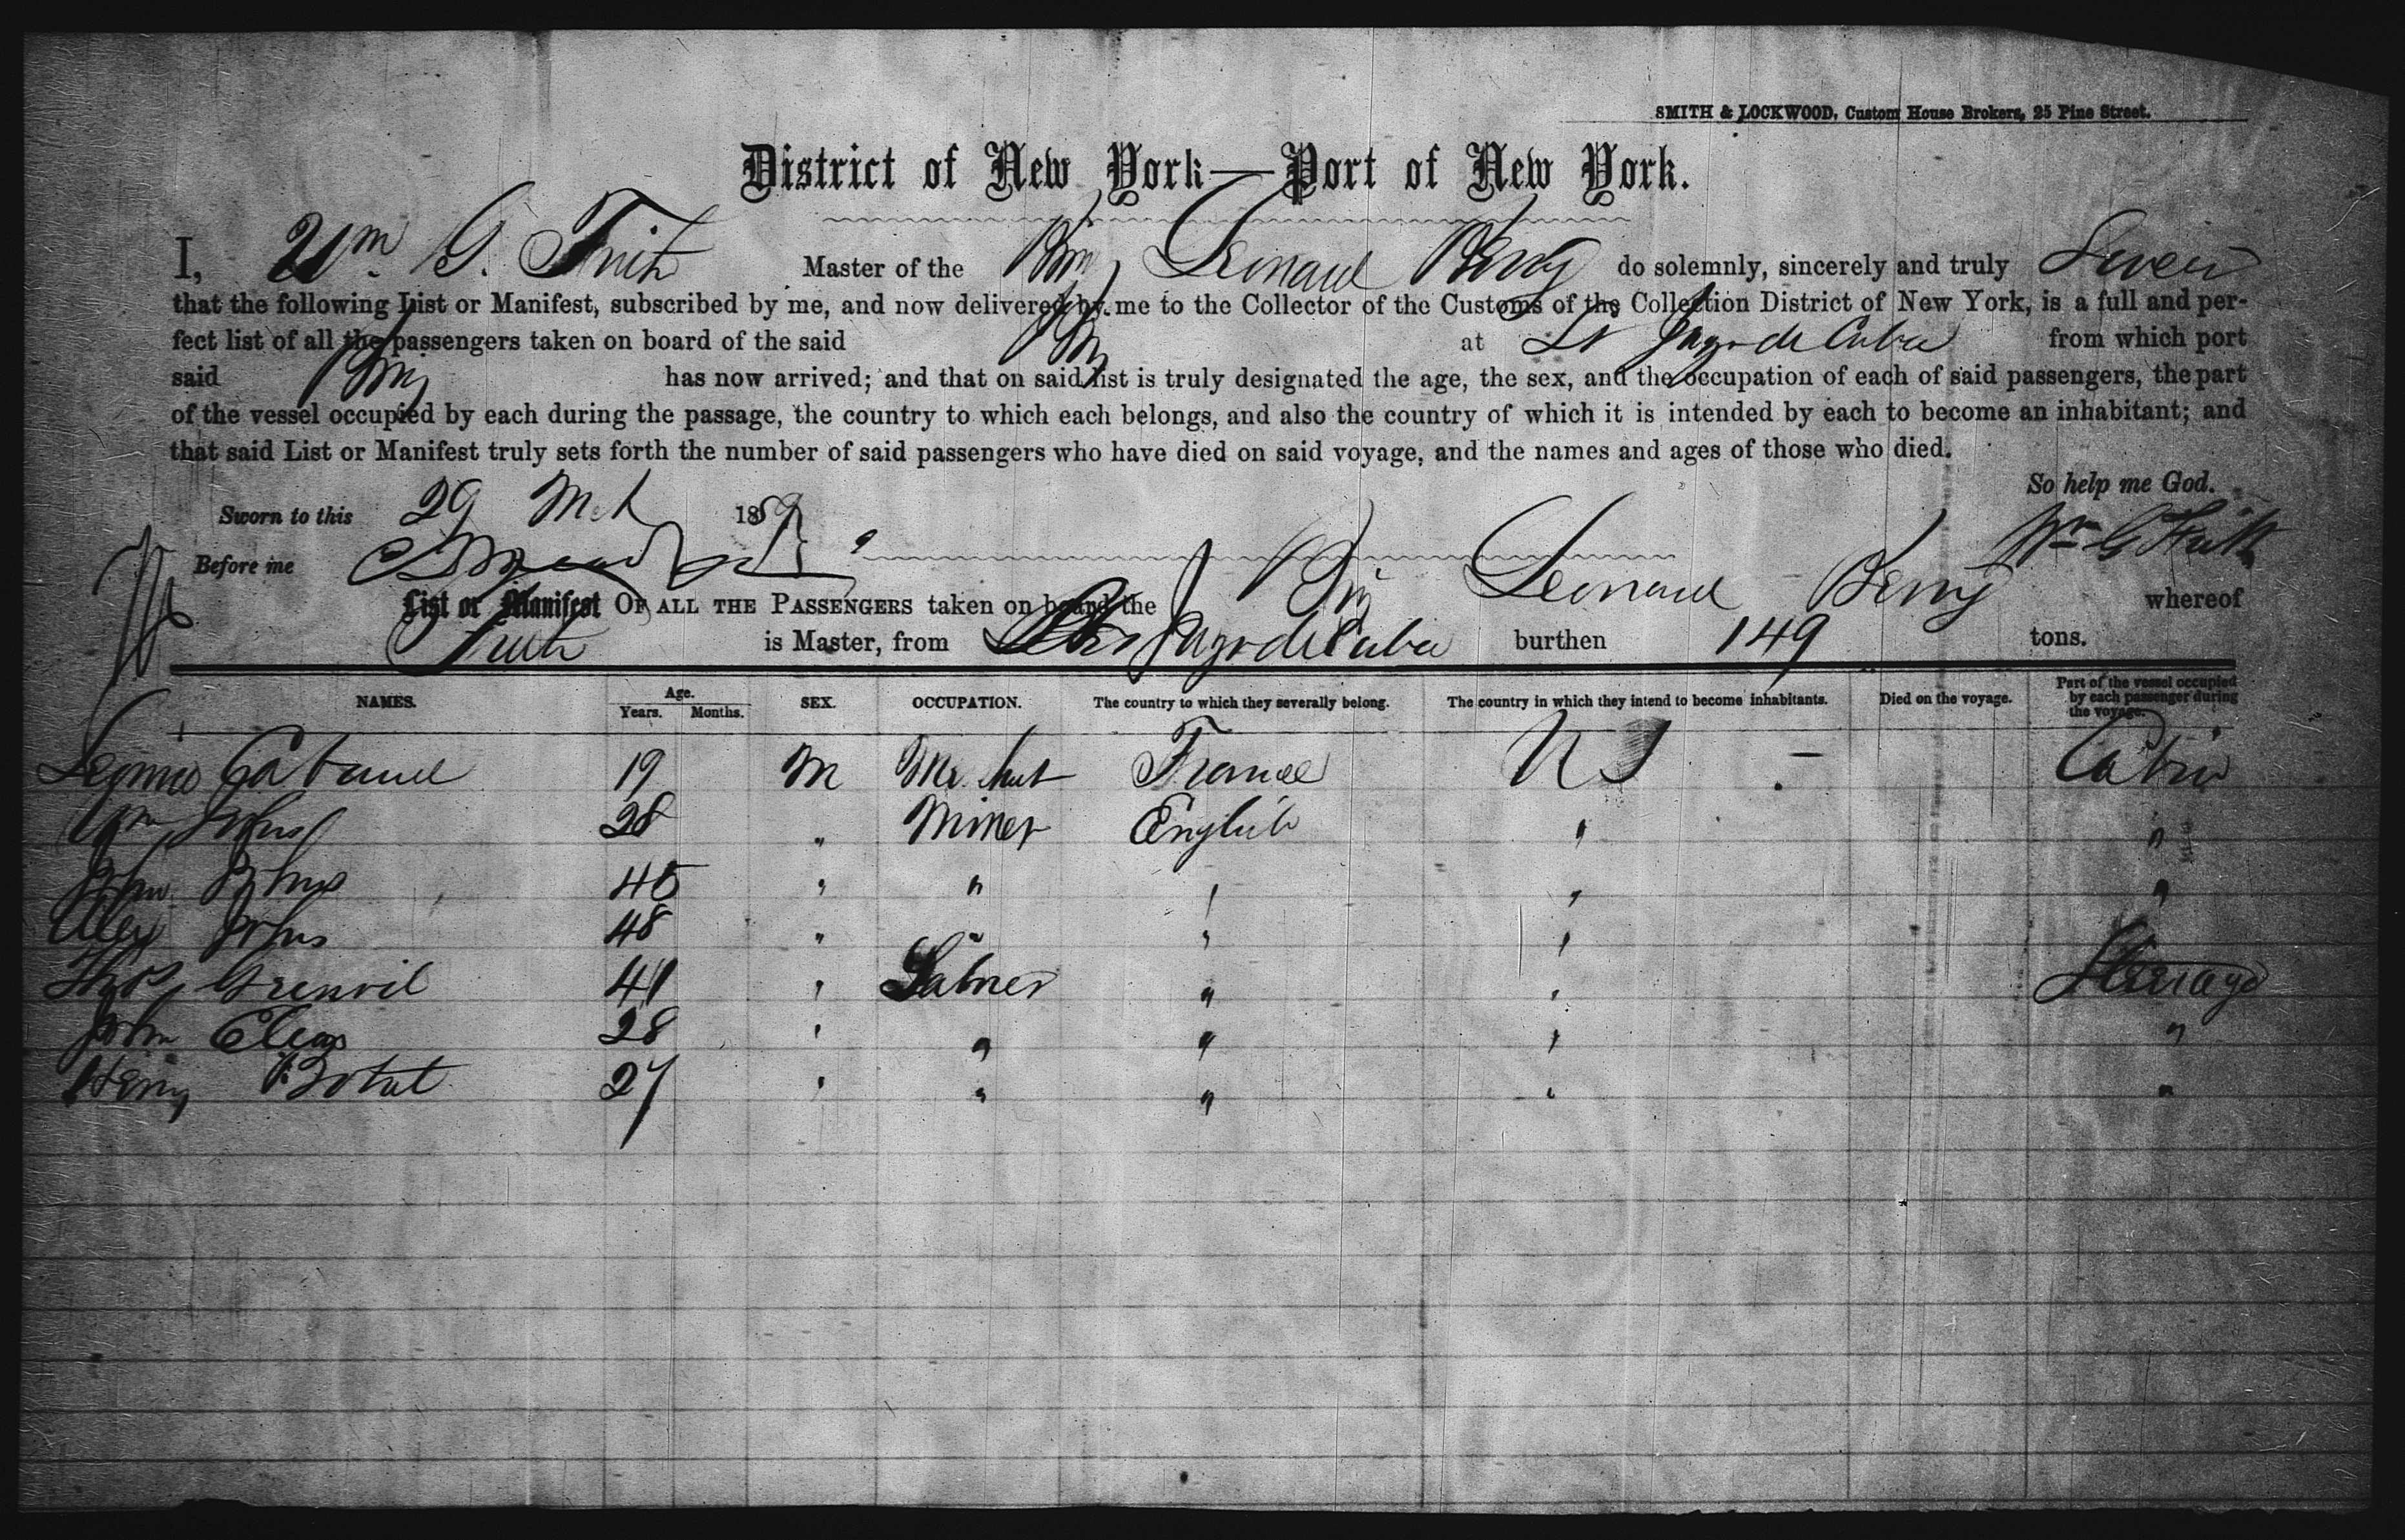 SMITH & LOCKWOOD, Custom House Brokers, 25 Pine Street.
District of New York—Port of New York.
I, Wm. G. Master of the Brig Leonard Berry do solemnly, sincerely and truly Swear
that the following List or Manifest, subscribed by me, and now delivered by me to the Collector of the Customs of the Collection District of New York, is a full and per-
fect list of all the passengers taken on board of the said Brig at St Jago de Cuba from which port
said Brig has now arrived; and that on said list is truly designated the age, the sex, and the occupation of each of said passengers, the part
of the vessel occupied by each during the passage, the country to which each belongs, and also the country of which it is intended by each to become an inhabitant; and
that said List or Manifest truly sets forth the number of said passengers who have died on said voyage, and the names and ages of those who died.
So help me God.
Sworn to this 29 Mch 1859
Before me Wm G
List or Manifest OF ALL THE PASSENGERS taken on board the Brig Leonard Berry whereof
is Master, from St Jago de Cuba burthen 149 tons.
NAMES. Age. Years. Months. SEX. OCCUPATION. The country to which they severally belong. The country in which they intend to become inhabitants. Died on the voyage. Part of the vessel occupied by each passenger during the voyage.
19 M Merchant France U S - Cabin
Wm Johns 28 " Miner English " "
John Johns 45 " " " " "
Alex Johns 48 " " " "
Thos Grenvil 41 " Labrer " " Steerage
John Elias 28 " " " " "
Henry 27 " " " " "